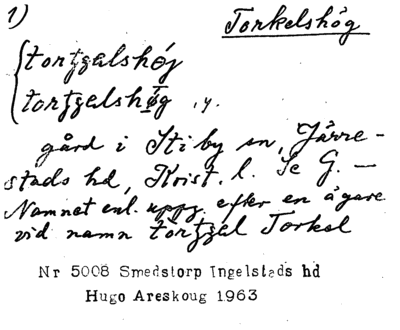 1) Torkelshög
tortzalshøj
tortzalshög, y.
gård i Stiby sn, Järre-
stads hd, Krist. l. Se G. —
Namnet enl. uppg. efter en ägare
vid namn tortzal Torkel
Nr 5008 Smedstorp Ingelstads hd
Hugo Areskoug 1963